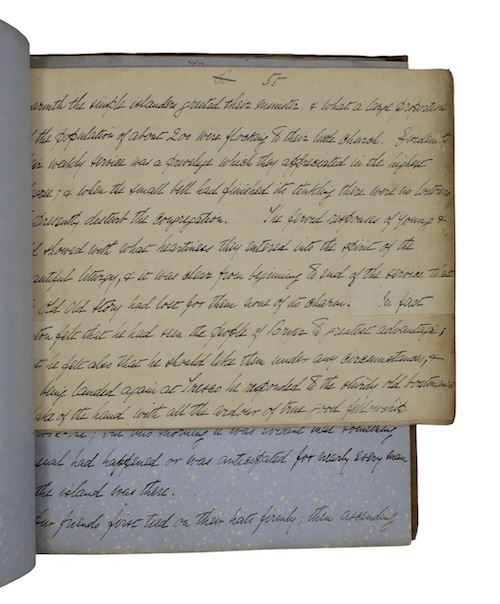 55
warmth the simple islanders greeted their minister & what a large proportion
the population of about 200 were flocking to their little church. Evidently
weekly service was a privilege which they appreciated in the highest
degree; & when the small bell had finished its tinkling there were no loiterers
presently disturb the congregation. The fervid responses of young &
showed with what heartiness they entered into the spirit of the
beautiful liturgy, & it was clear from beginning to end of the service that
Old Old Story had lost for them none of its charm. In fact
felt that he had seen the people of Bryer to greatest advantage;
he felt also that he should like them under any circumstances, &
being landed again at Tresco he responded to the sturdy old boatman's
shake of the hand with all the ardour of true good fellowship.
; but this morning it was evident that something
had happened or was anticipated for nearly every man
the island was there.
Our friends first tied on their hats firmly; then ascending